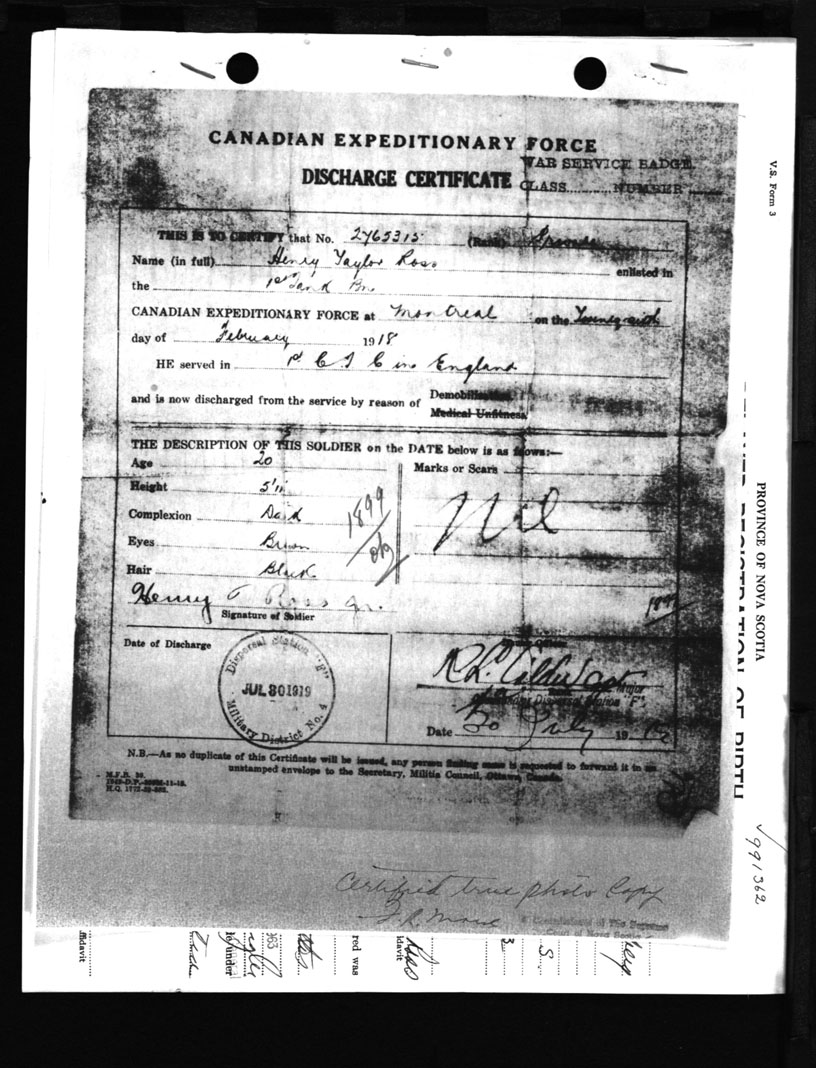 CANADIAN EXPEDITIONARY FORCE
WAR SERVICE BADGE
DISCHARGE CERTIFICATE CLASS.......... NUMBER
THIS IS TO CERTIFY that No. 2765315 (Rank)
Name (in full) Henry Taylor Ross enlisted in
the 1st Bn
CANADIAN EXPEDITIONARY FORCE at Montreal on the
day of February 1918
HE served in C in England
and is now discharged from the service by reason of Demobilization
Medical Unfitness
THE DESCRIPTION OF THIS SOLDIER on the DATE below is as follows:—
Age 20
Marks or Scars
Height 5'11
Nil
Complexion Dark
1899
Eyes Brown
Hair Black
Henry T Ross Jr.
Signature of Soldier
Date of Discharge
Dispersal Station "F"
JUL 30 1919
Military District No. 4
Major
Dispersal Station "F"
Date 30 July 19
N.B.—As no duplicate of this Certificate will be issued, any person finding same is requested to forward it in an
unstamped envelope to the Secretary, Militia Council, Ottawa, Canada.
M.F.B. 39.
Certified true photo Copy
V.S. Form 3
PROVINCE OF NOVA SCOTIA
REGISTRATION OF BIRTH
991362
ffidavit
under
963
red was
idavit
Ross
3
S